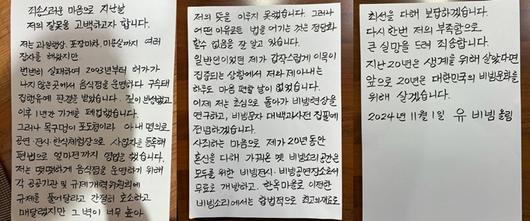 죄송스러운 마음으로 지난날
저의 잘못을 고백하고자 합니다.
저는 과일행상, 포장마차, 미용실까지 여러
장사를 해왔지만
번번히 실패하여 2003년부터 허가가
나지 않은곳에서 음식점을 운영하다 구속돼
집행유예 판결을 받았다. 잘못 반성하고
이후 1년간 가게를 폐업했습니다.
그러나 목구멍이 포도청이라 아내 명의로
공연·전시·한식체험장으로 사업자를 등록해
편법으로 얼마전까지 영업을 했습니다.
저는 떳떳하게 음식점을 운영하기 위해
각 공공기관 및 규제개혁위원회에
규제를 풀어달라고 간절히 호소하고
매달렸지만 그 벽이 너무 높아
저의 뜻을 이루지 못했습니다. 그러나
어떤 이유로든 법을 어기는 것은 정당화
할수 없음을 잘 알고 있습니다.
일반인이었던 제가 갑작스럽게 이목이
집중되는 상황에서 저와 제아내는
하루도 마음 편할 날이 없었습니다.
이제 저는 초심으로 돌아가 비빔현상을
연구하고, 비빔문자 대백과사전 집필에
전념하겠습니다.
사죄하는 마음으로 제가 20년 동안
혼신을 다해 가꿔온 옛 비빔소리 공간은
모두를 위한 비빔전시·비빔공연장소로서
무료로 개방하고, 한옥마을로 이전한
비빔소리에서는 합법적으로 최고의 재료로
최선을 다해 보답하겠습니다.
다시 한번 저의 부족함으로
큰 실망을 드려 죄송합니다.
지난 20년은 생계를 위해 살았다면
앞으로 20년은 대한민국의 비빔문화를
위해 살겠습니다.
2024년 11월 1일 유 비빔 올림